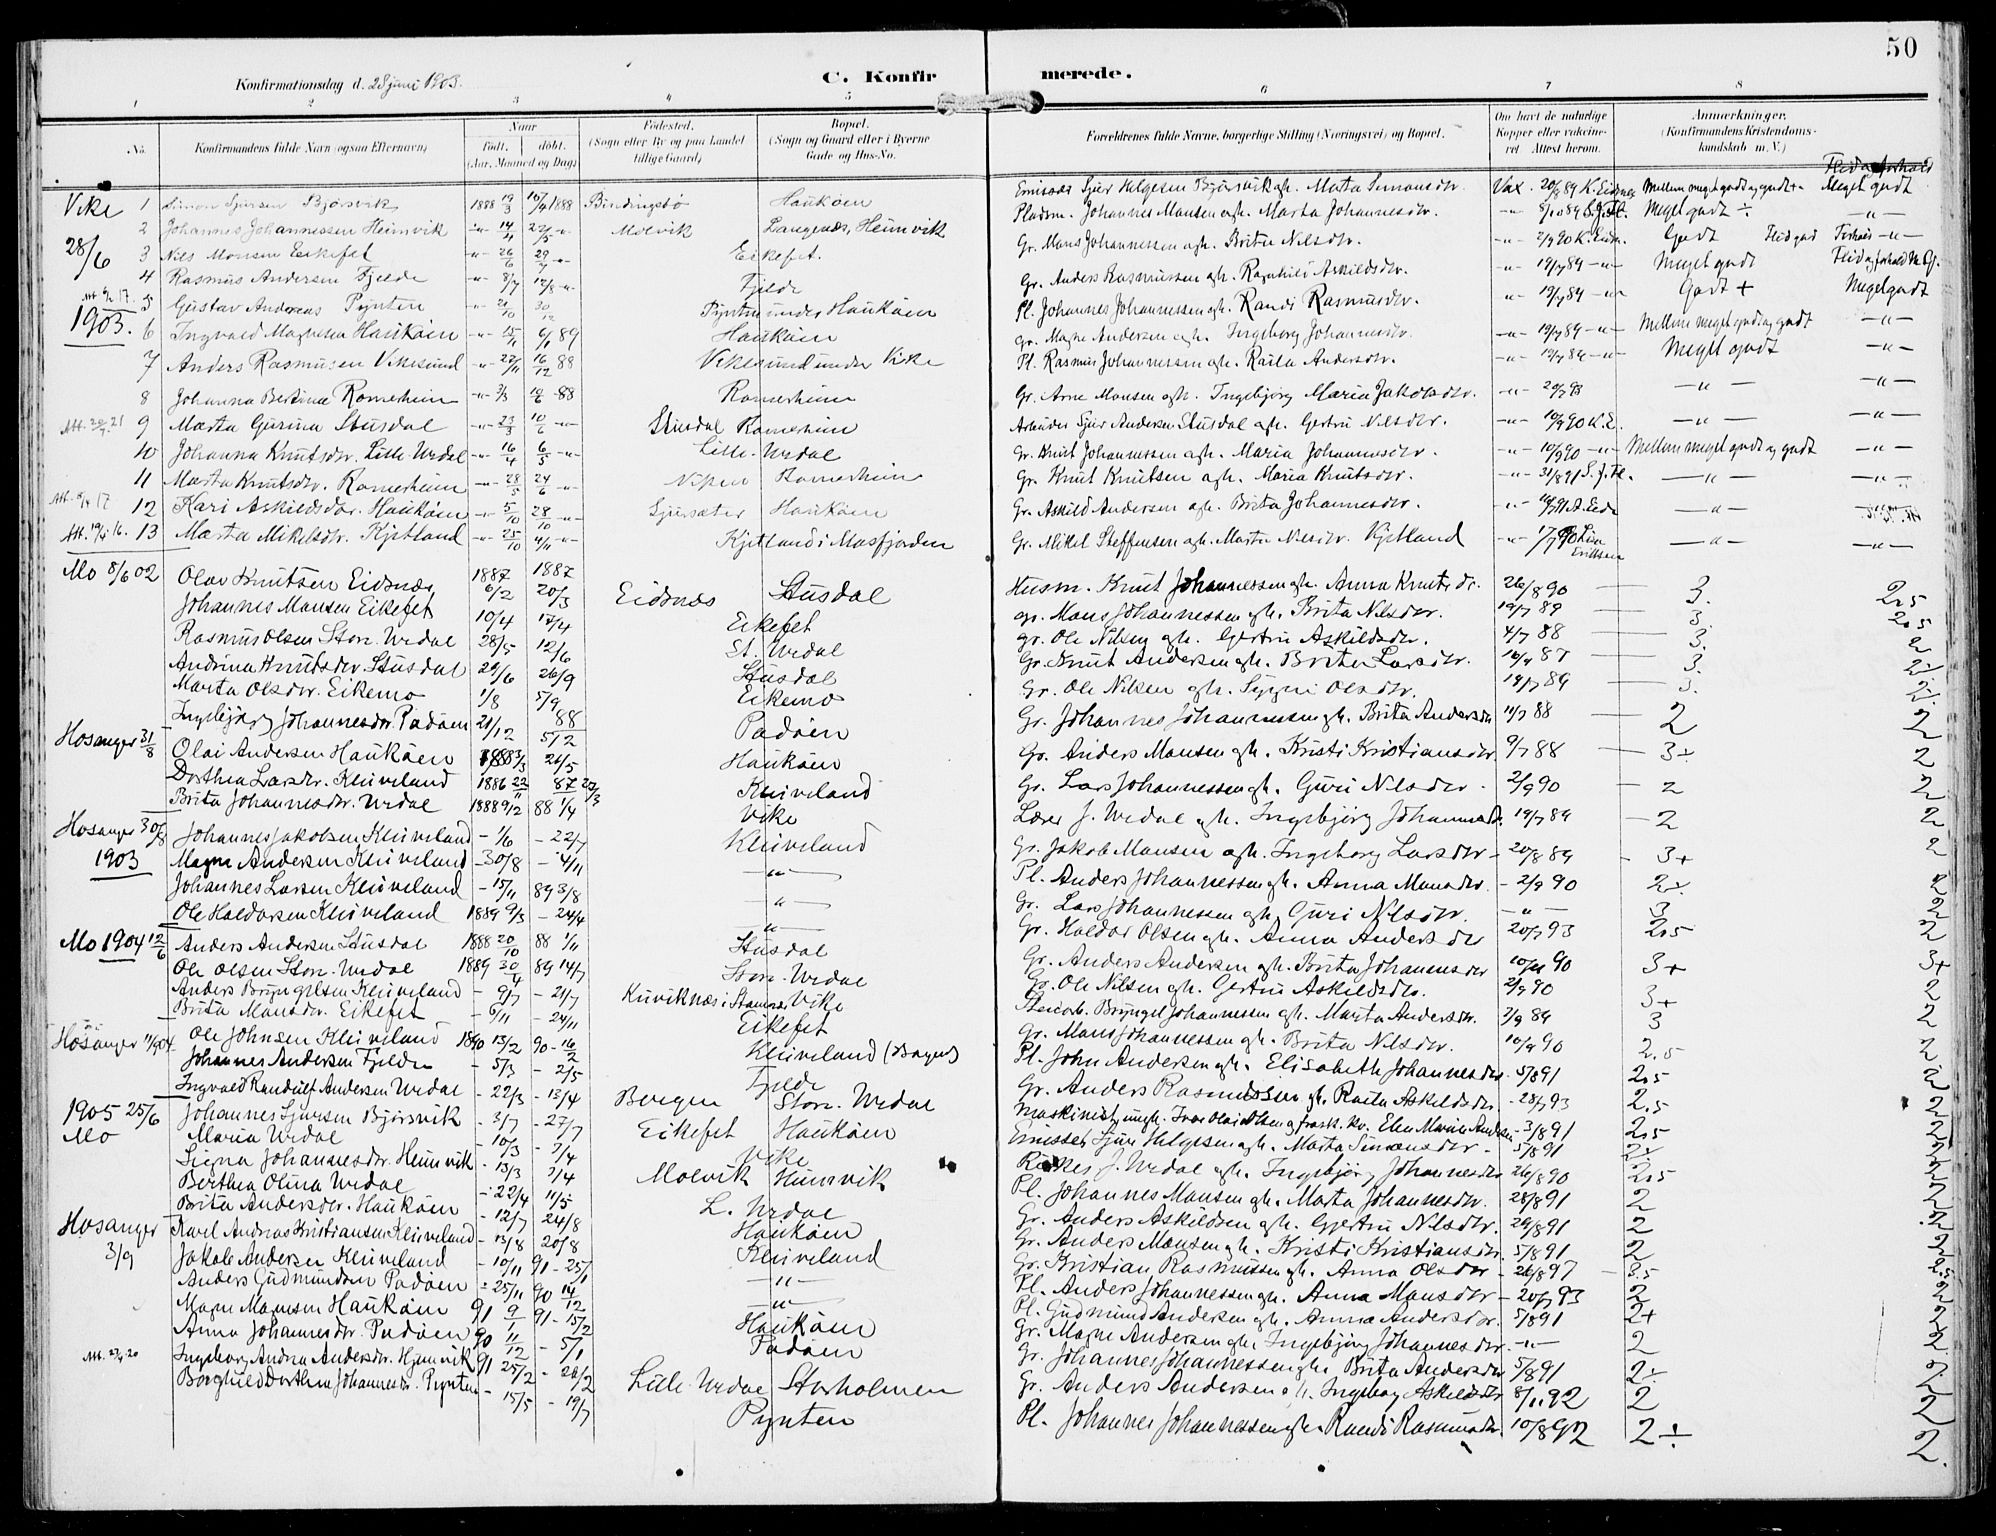 50
Konfirmationsdag d. 28 juni 1903.
C. Konfirmerede.
1 2 3 4 5 6 7 8
No. Konfirmandens fulde Navn (ogsaa Efternavn) Naar født. døbt. (Aar, Maaned og Dag) Fødested. (Sogn eller By og paa Landet tillige Gaard) Bopæl. (Sogn og Gaard eller i Byerne Gade og Hus-No. Forældrenes fulde Navne, borgerlige Stilling (Næringsvei) og Bopæl. Om havt de naturlige Kopper eller vakcineret. Attest herom. Anmærkninger. (Konfirmandens Kristendomskundskab m. V.)
Vike 1 Simon Sjursen Bjørsvik 1888 1888 Haukøen Emissær Sjur Helgesen Bjørsvik gh. Marta Simonsdr. Vax. Mellem meget godt og godt Meget godt
2 Johannes Johannessen Heimvik Molvik Langenæs, Heimvik Pladsm. Johannes Monsen gh. Marta Johannesdr. Meget godt ÷ -"-
28/6 3 Nils Monsen Eikefet 26/6 Eikefet. Gr. Mons Johannessen gh. Brita Nilsdr. Godt -"-
4 Rasmus Andersen Fjelde 8/7 Fjelde Gr. Anders Rasmussen gh. Ragnhild Askildsdr. 19/7 89 Meget godt
5 Gustav Andreas Pynten 21/10 30/12 Pynten under Haukøen Pl. Johannes Johannessen gh. Randi Rasmusdr. 19/7 89 Godt + Megetgodt
1903. 6 Ingvald Magnesen Haukøen 6/1 89 Haukøen Gr. Magne Andersen gh. Ingeborg Johannesdr. 19/7 89 Mellem meget godt og godt -"-
7 Anders Rasmusen Vikesund 22/11 16/12 88 Vikesund under Vike Pl. Rasmus Johannessen gh. Raila Andersdr. 19/7 89 Meget godt -"-
8 Johanna Bertina Romerheim 88 Romerheim Gr. Arne Monsen gh. Ingebjørg Maria Jakobsdr. -"- -"-
9 Marta Gurina Stusdal 23/3 10/6 Stusdal Romerheim Arbeider Sjur Andersen Stusdal gh. Gertru Nilsdr. -"- -"-
10 Johanna Knutsdr. Lille-Urdal 16/4 6/5 Lille-Urdal Gr. Knut Johannessen gh. Maria Johannesdr. Mellem meget godt og godt -"-
11 Marta Knutsdr. Romerheim 28/5 24/6 Romerheim Gr. Knut Knutsen gh. Maria Knutsdr. 31/8 91 -"- -"-
12 Kari Askildsdr. Haukøen 5/10 28/10 Haukøen Gr. Askild Andersen gh. Brita Johannesdr. -"-
13 Marta Mikelsdr. Kjetland 25/10 4/11 Kjetland i Masfjorden Gr. Mikel Steffensen gh. Marta Nilsdr. Kjetland -"- -"-
Mo 8/6 02 Olav Knutsen Eidsnæs 1887 6/2 1887 20/3 Eidsnæs Stusdal Husm. Knut Johannessen gh. Anna Knutsdr. 26/8 90 3. 2.5
Johannes Monsen Eikefet 10/4 17/4 Eikefet gr. Mons Johannessen gh. Brita Nilsdr. 19/7 89 3. 2.5
Rasmus Olsen Store Urdal 28/5 12/6 St. Urdal gr. Ole Nilsen gh. Gertru Askildsdr. 4/7 88 3. 2
Andrina Knutsdr Stusdal 29/6 26/9 Stusdal Gr. Knut Andersen gh. Brita Larsdr. 3. 2
Marta Olsdr. Eikemo 1/8 5/9 Eikemo Gr. Ole Nilsen gh. Olsdr. 19/7 89 3.
Ingebjørg Johannesdr Padøen 21/12 88 5/2 Padøen Gr. Johannes Johannessen gh. Brita Andersdr 88 2 2
Hosanger 31/8 Olai Andersen Haukøen 26/5 Haukøen Gr. Anders Monsen gh. Kristi Kristiansdr 9/7 88 3÷ 2
Dorthea Larsdr. Kleiveland 1886 22/11 87 Kleiveland Gr. Lars Johannessen gh. Guri Nilsdr. 2/9 90 2 2
Brita Johannesdr. Urdal 1888 9/2 88 1/4 Vike Lærer J. Urdal gh. Ingebjørg Johannesdr. 19/7 89 2 2
Hosanger 30/8 Johannes Jakobsen Kleiveland 1/6 22/7 Kleiveland Gr. Jakob Monsen gh. Ingeborg Larsdr 20/8 89 3+ 2
1903 Magne Andersen Kleiveland 30/8 4/11 -"- Pl. Anders Johannessen gh. Anna Monsdr. 2/9 90 2÷ 2
Johannes Larsen Kleiveland 15/11 89 3/8 -"- Gr. Lars Johannessen gh. Guri Nilsdr. -"- 3 2
Ole Haldorsen Kleiveland 1889 9/3 24/4 -"- Gr. Haldor Olsen gh. Anna Andersdr 20/7 93 2.5 2
Mo 1904 12/6 Anders Andersen Stusdal 1888 20/10 88 1/11 Stusdal Gr. Anders Andersen gh. Brita Johannesdr 90 3+ 3+
Ole Olsen Store-Urdal 1889 30/4 89 14/7 Store-Urdal Gr. Ole Nilsen gh. Gertru Askildsdr. 2/9 90 3+ 2
Anders Bryngelsen Kleiveland 9/7 21/7 Kvinæs i Stamnes Vike Bryngel Johannessen gh. Marta Andersdr. 7/9 89 3 2
Brita Monsdr. Eikefet 6/11 24/11 Eikefet Gr. Mons Johannessen gh. Brita Nilsdr. 10/9 90 2.5 2
Hosanger 11/9 04 Ole Johnsen Kleiveland 1890 13/2 90 16/2 Kleiveland Pl. John Andersen gh. Elisabeth Johannesdr 5/8 91 2.5 2
Johannes Andersen Fjelde 5/3 2/5 Fjelde Gr. Anders Rasmussen gh. Raila Askildsdr 28/7 93 2.5 2
Ingvald Randulf Andersen Urdal 22/3 13/4 Bergen Store-Urdal Maskinist ungk. Ivar Olai Olsen og frask. kv. Elen Marie Andersen 3/8 91 2.5 2
1905 25/6 Johannes Sjursen Bjørsvik 3/7 27/7 Eikefet Haukøen Emissær Sjur Helgesen gh. Marta Simonsdr 5/8 91 2÷ 2
Mo Maria Urdal 10/3 7/4 Vike Kirkes. J. Urdal gh. Ingebjørg Johannesdr 26/8 90 2.5 2
Signa Johannesdr. Heimvik 13/3 7/4 Molvik Heimvik Pl. Johannes Monsen gh. Marta Johannesdr. 28/8 91 2 2
Berthea Olina Urdal 22/4 11/5 L. Urdal Gr. Anders Askildsen gh. Gjertru Nilsdr. 29/8 91 2 2
Brita Andersdr. Haukøen 12/7 24/8 Haukøen Gr. Anders Monsen gh. Kristi Kristiansdr 5/8 91 2 2
Hosanger 3/9 Karl Andreas Kristiansen Kleiveland 13/8 20/8 Kleiveland Gr. Kristian Rasmussen gh. Anna Olsdr 26/8 97 2.5
Jakob Andersen Kleiveland 10/11 91 25/1 -"- Pl. Anders Johannessen gh. Anna Monsdr 20/7 93 2 2
Anders Gudmundsen Padøen 25/11 90 14/12 -"- Pl. Gudmund Andersen gh. Anna Andersdr. 5/8 91 2+ 2
Magne Magnesen Haukøen 91 9/1 91 15/2 Haukøen Gr. Magne Andersen gh. Ingebjørg Johannesdr. -"- 2 2
Anna Johannesdr. Padøen 90 11/12 5/1 Padøen Gr. Johannes Johannessen gh. Brita Andersdr 5/8 91 2÷ 2
Ingeborg Andrea Andersdr. Hjemvik 91 25/2 28/2 Lille-Urdal Storholmen Gr. Anders Andersen gh. Ingeborg Askildsdr 92 2 2
Borghild Dorthea Johannesdr. Pynten 15/5 19/7 Pynten Pl. Johannes Johannessen gh. Randi Rasmusdr. 10/8 92 2÷ 2.